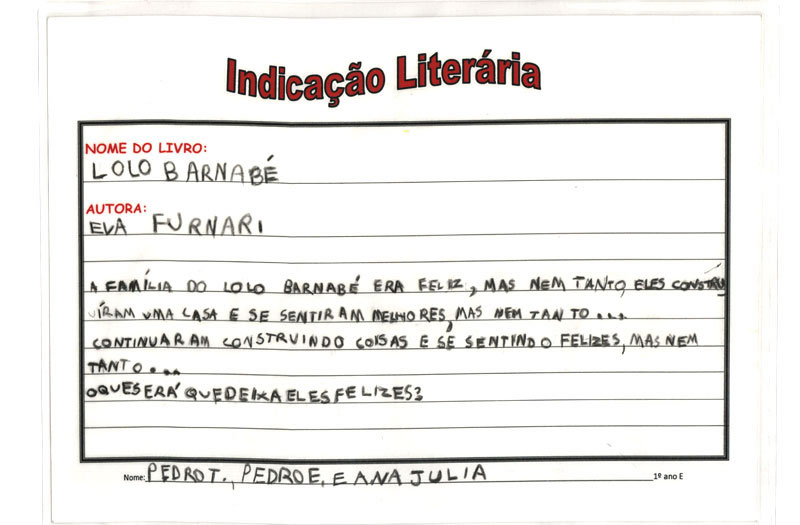 Indicação Literária
NOME DO LIVRO:
LOLO BARNABÉ
AUTORA:
EVA FURNARI
A FAMÍLIA DO LOLO BARNABÉ ERA FELIZ, MAS NEM TANTO, ELES CONSTRU
ÍRAM UMA CASA E SE SENTIRAM MELHORES, MAS NEM TANTO...
CONTINUARAM CONSTRUINDO COISAS E SE SENTINDO FELIZES, MAS NEM
TANTO...
O QUE SERÁ QUE DEIXA ELES FELIZES?
Nome: PEDRO T., PEDRO E, E ANA JULIA 1º ano E